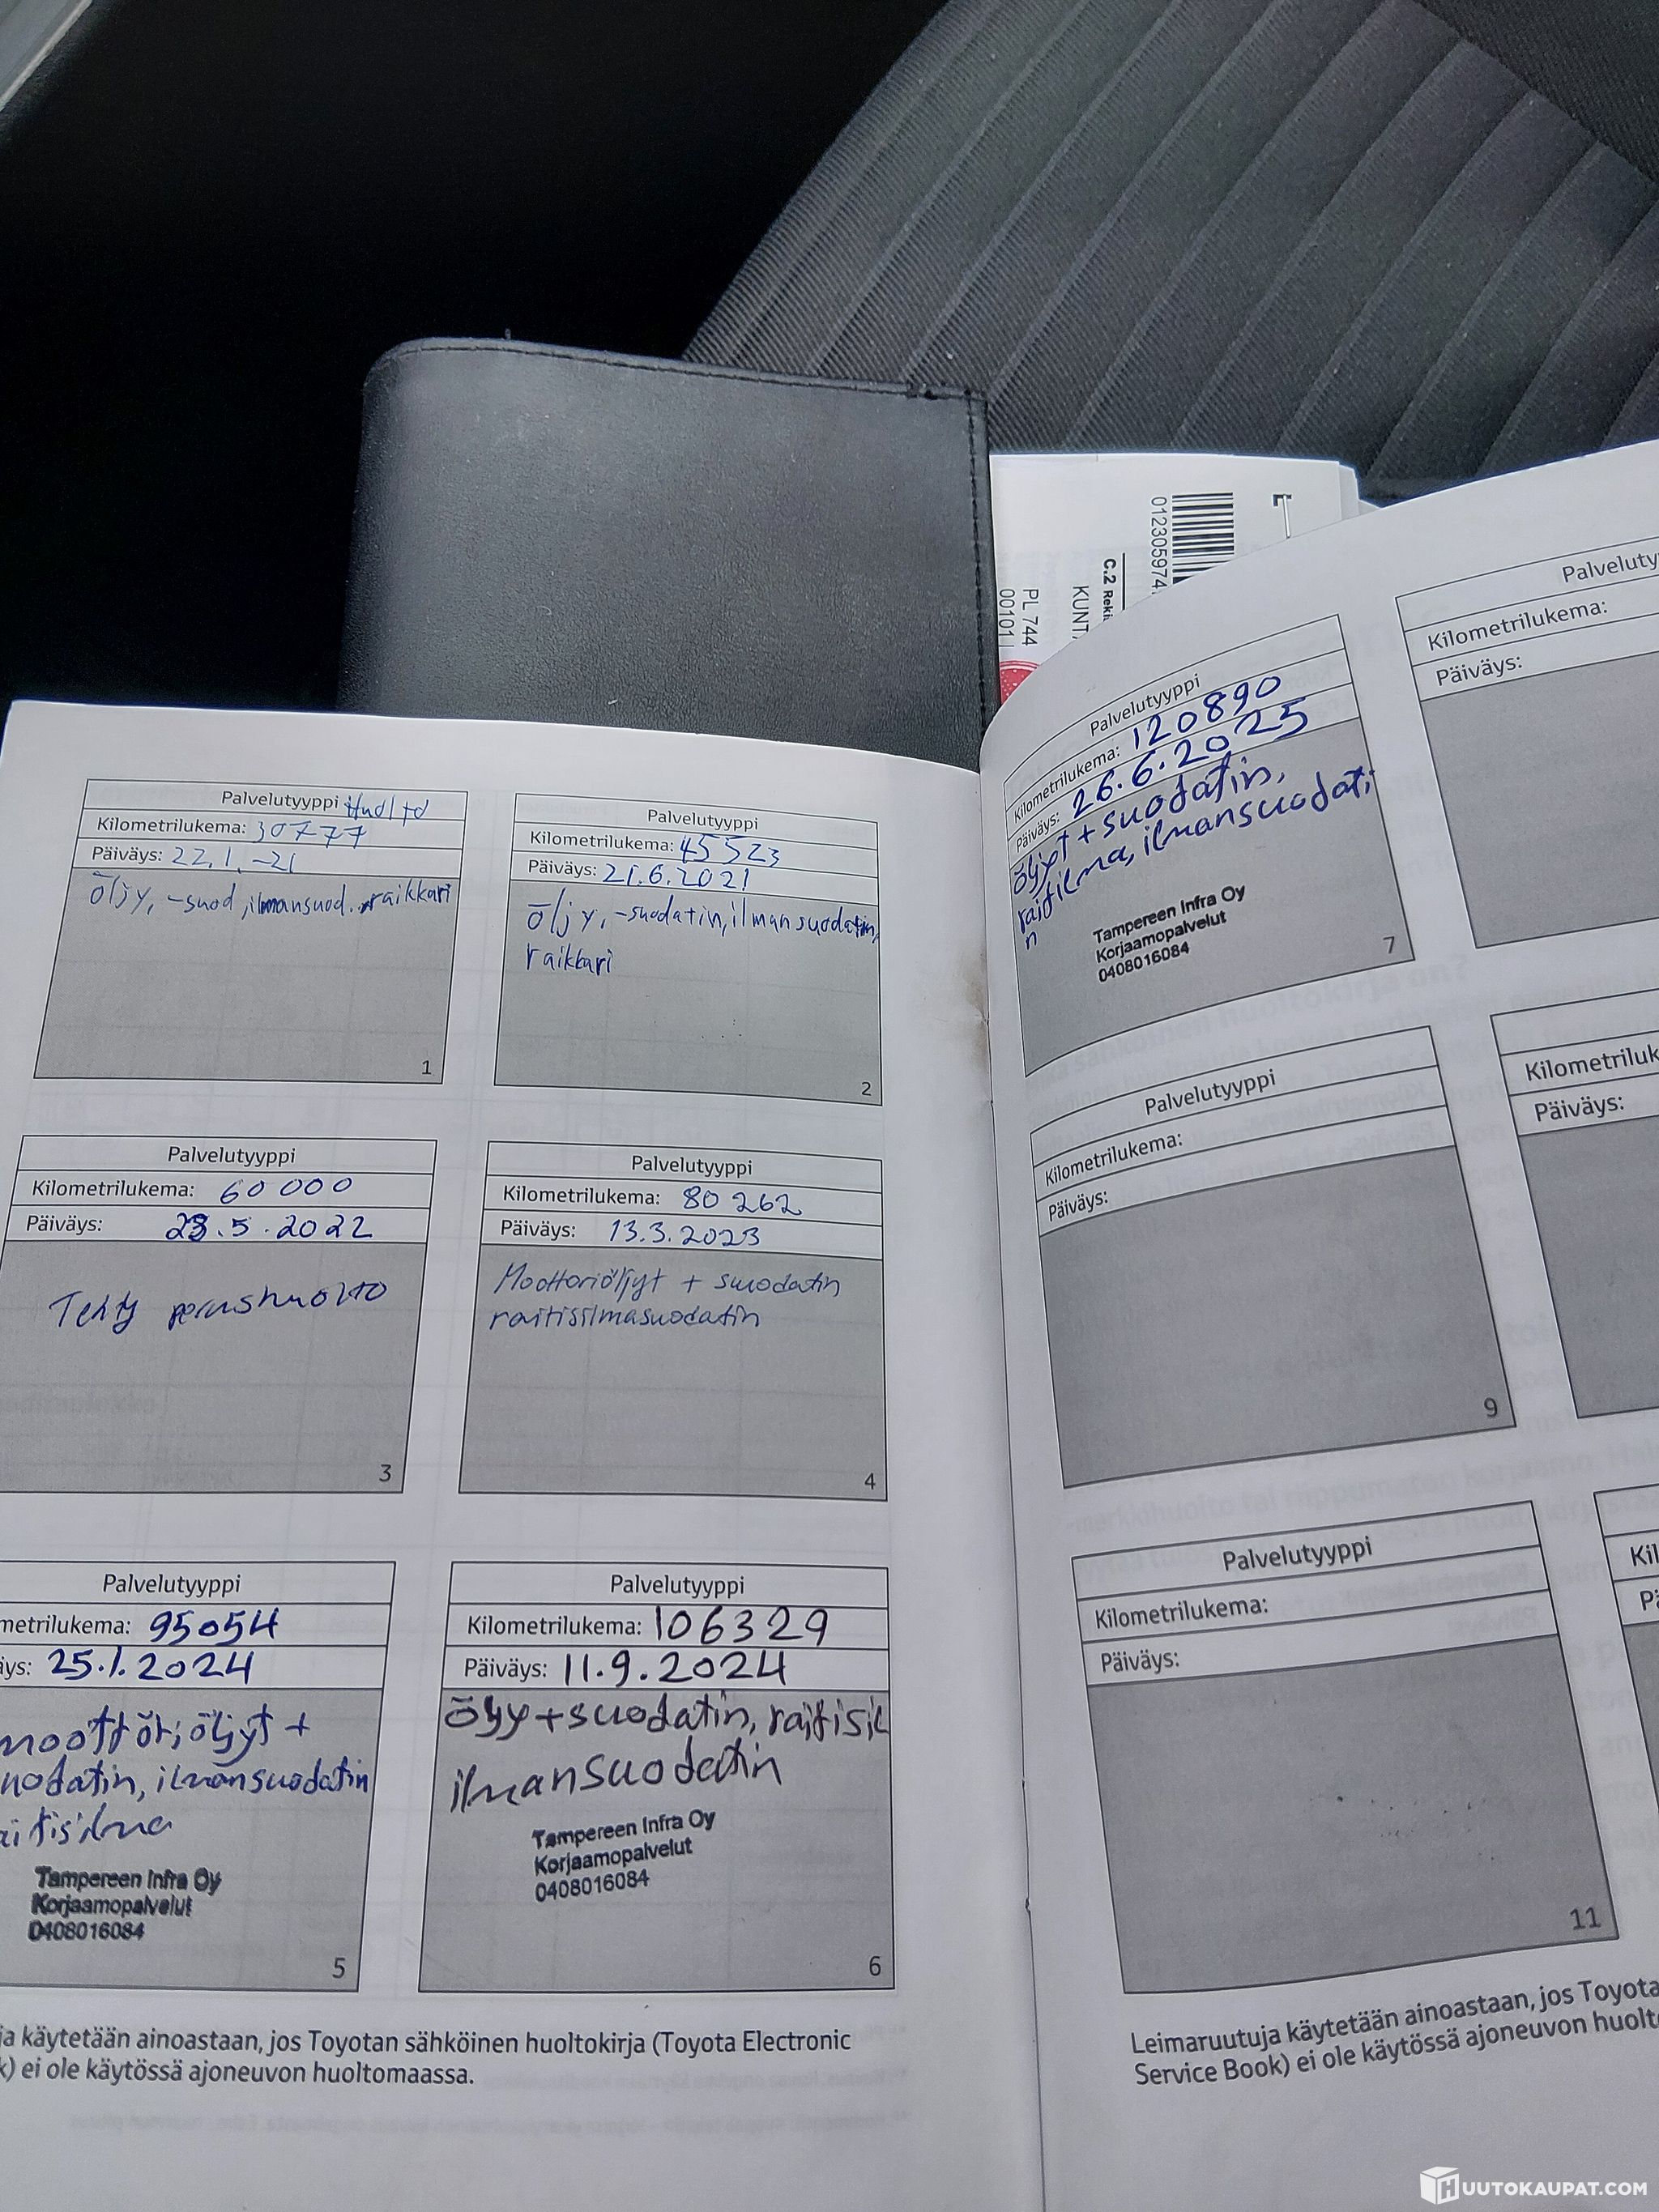 012305974
C.2 Reki
KUNT
PL 744
00101
Palvelutyyppi Huolto
Kilometrilukema: 30777
Päiväys: 22.1.-21
Öljy, -suod, ilmansuod. raikkari
1
Palvelutyyppi
Kilometrilukema: 45523
Päiväys: 21.6.2021
Öljy, -suodatin, ilmansuodatin,
raikkari
2
Palvelutyyppi
Kilometrilukema: 60 000
Päiväys: 23.5.2022
Tehty perushuolto
3
Palvelutyyppi
Kilometrilukema: 80 262
Päiväys: 13.3.2023
Moottoriöljyt + suodatin
raitisilmasuodatin
4
Palvelutyyppi
metrilukema: 95054
äys: 25.1.2024
moottöriöljyt +
uodatin, ilmansuodatin
aitisilma
Tampereen Infra Oy
Korjaamopalvelut
0408016084
5
Palvelutyyppi
Kilometrilukema: 106329
Päiväys: 11.9.2024
öljy+suodatin, raitisil
ilmansuodatin
Tampereen Infra Oy
Korjaamopalvelut
0408016084
6
ja käytetään ainoastaan, jos Toyotan sähköinen huoltokirja (Toyota Electronic
k) ei ole käytössä ajoneuvon huoltomaassa.
Palvelutyyppi
Kilometrilukema: 120890
Päiväys: 26.6.2025
öljyt + suodatin,
raitisilma, ilmansuodati
n
Tampereen Infra Oy
Korjaamopalvelut
0408016084
7
Palveluty
Kilometrilukema:
Päiväys:
Palvelutyyppi
Kilometrilukema:
Päiväys:
9
Kilometriluk
Päiväys:
Palvelutyyppi
Kilometrilukema:
Päiväys:
11
Kil
Pä
Leimaruutuja käytetään ainoastaan, jos Toyota
Service Book) ei ole käytössä ajoneuvon huolt
HUUTOKAUPAT.COM